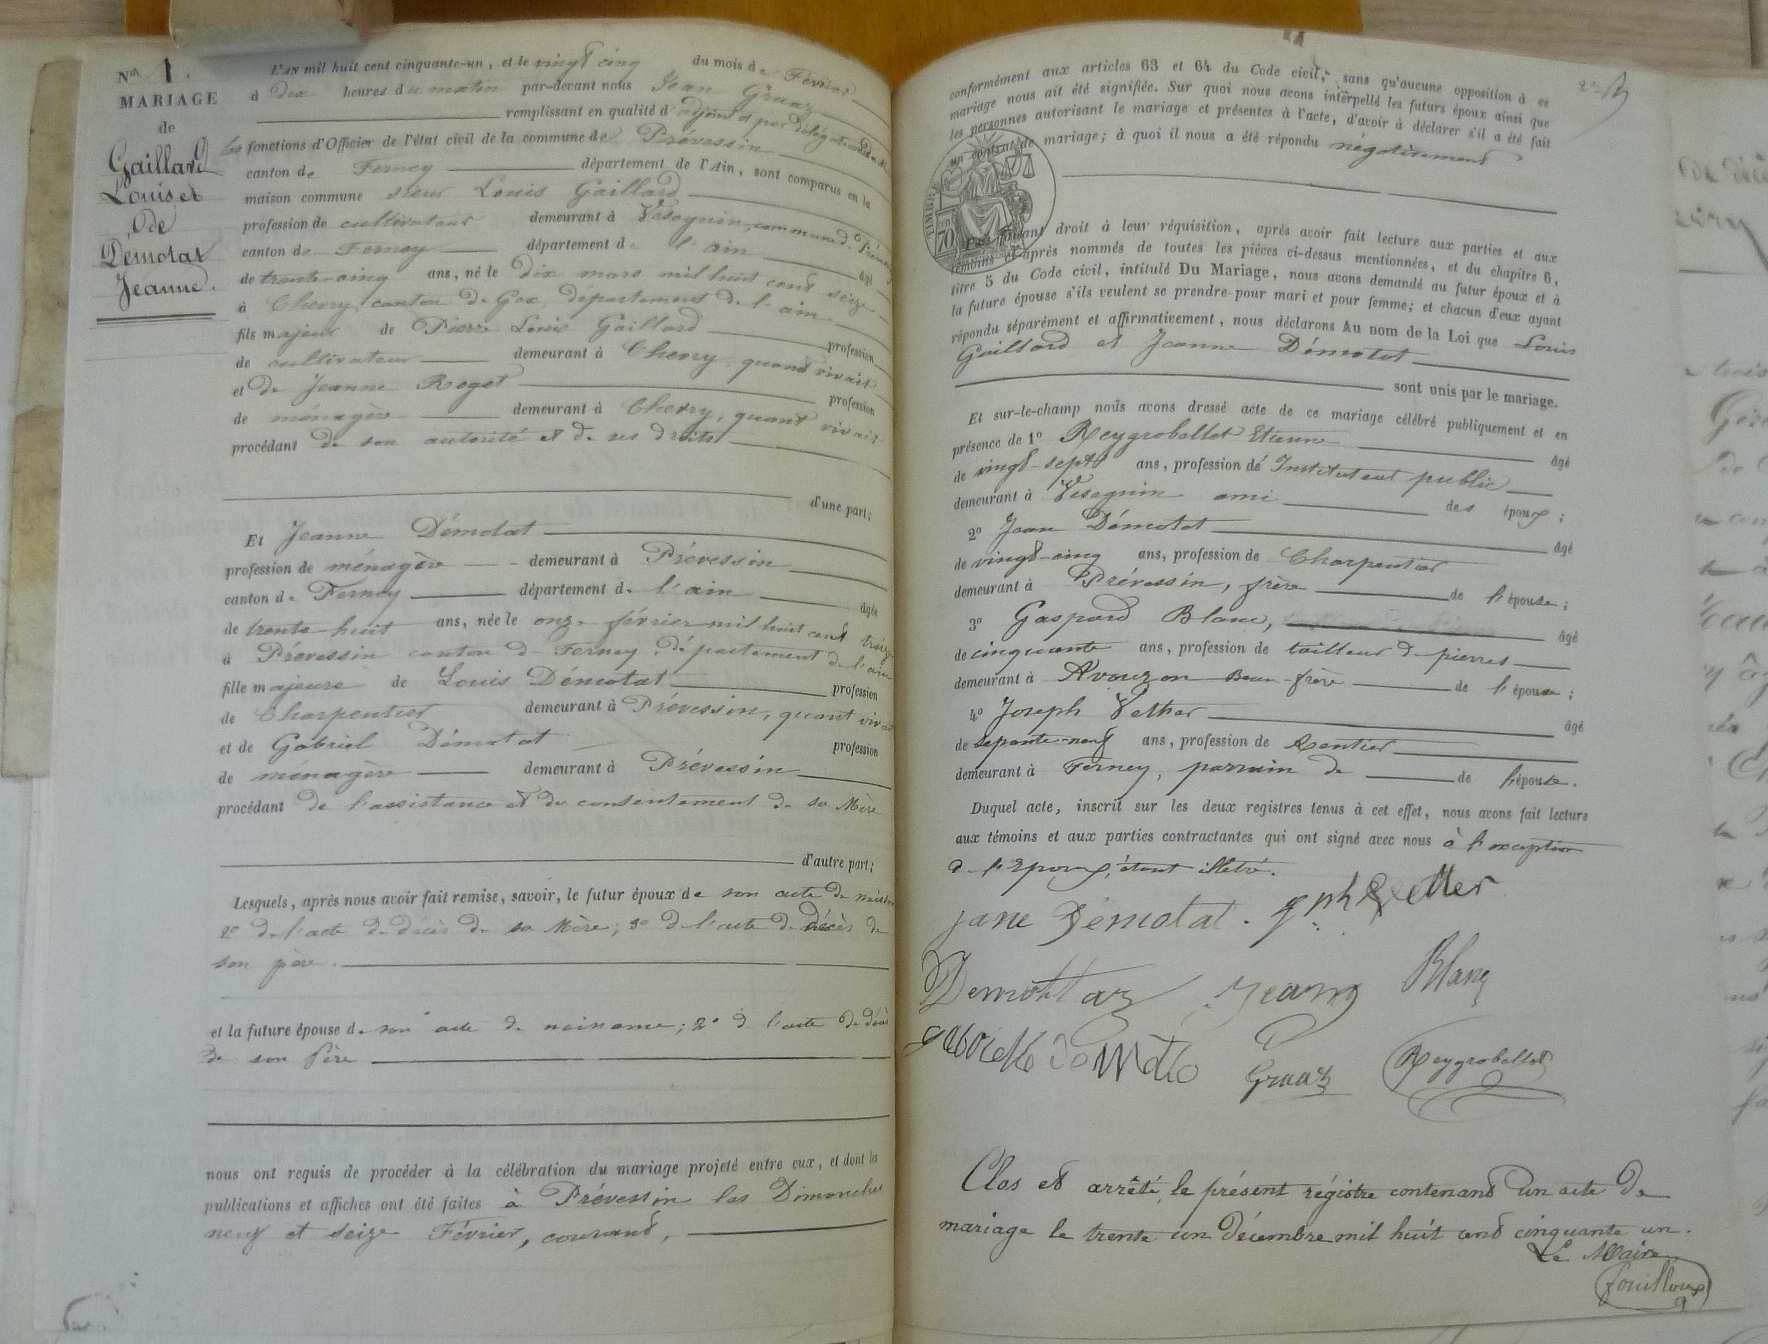 Nos 1.
MARIAGE
de
Gaillard
Louis et
de
Démotat
Jeanne.
L'AN mil huit cent cinquante-un, et le vingt cinq du mois de Février
à dix heures du matin par-devant nous Jean Graaz
remplissant en qualité d'adjoint et par délégation
les fonctions d'Officier de l'état civil de la commune de Prévessin
canton de Ferney département de l'Ain, sont comparus en la
maison commune sieur Louis Gaillard
profession de cultivateur demeurant à Vésegnin, commune de Prévessin
canton de Ferney département de l'ain âgé
de trente-cinq ans, né le dix mars mil huit cent seize
à Chevry, canton de Gex, département de l'ain
fils majeur de Pierre Louis Gaillard profession
de cultivateur demeurant à Chevry, quand vivait
et de Jeanne Roget profession
de ménagère demeurant à Chevry, quant vivait
procédant de son autorité et de ses droits
d'une part;
Et Jeanne Démotat
profession de ménagère demeurant à Prévessin
canton de Ferney département de l'ain âgée
de trente-huit ans, née le onze février mil huit cent treize
à Prévessin canton de Ferney, département de l'ain
fille majeure de Louis Démotat profession
de Charpentier demeurant à Prévessin, quant vivait
et de Gabriel Démotat profession
de ménagère demeurant à Prévessin
procédant de l'assistance et du consentement de sa Mère
d'autre part;
Lesquels, après nous avoir fait remise, savoir, le futur époux de son acte de naissance
2° de l'acte de décès de sa Mère; 3° de l'acte de décès de
son père.
et la future épouse de son acte de naissance; 2° de l'acte de décès
de son Père
nous ont requis de procéder à la célébration du mariage projeté entre eux, et dont les
publications et affiches ont été faites à Prévessin les Dimanches
neuf et seize Février, courant,
conformément aux articles 63 et 64 du Code civil, sans qu'aucune opposition à ce
mariage nous ait été signifiée. Sur quoi nous avons interpellé les futurs époux ainsi que
les personnes autorisant le mariage et présentes à l'acte, d'avoir à déclarer s'il a été fait
un contrat de mariage; à quoi il nous a été répondu négativement
TIMBRE
70
Faisant droit à leur réquisition, après avoir fait lecture aux parties et aux
témoins ci-après nommés de toutes les pièces ci-dessus mentionnées, et du chapitre 6,
titre 5 du Code civil, intitulé Du Mariage, nous avons demandé au futur époux et à
la future épouse s'ils veulent se prendre pour mari et pour femme; et chacun d'eux ayant
répondu séparément et affirmativement, nous déclarons Au nom de la Loi que Louis
Gaillard et Jeanne Démotat
sont unis par le mariage.
Et sur-le-champ nous avons dressé acte de ce mariage célébré publiquement et en
présence de 1° Reygrobellet Etienne âgé
de vingt-sept ans, profession de Instituteur public
demeurant à Vésegnin ami des époux;
2° Jean Démotat âgé
de vingt-cinq ans, profession de Charpentier
demeurant à Prévessin, frère de l'épouse;
3° Gaspard Blanc, âgé
de cinquante ans, profession de tailleur de pierres
demeurant à Avouzon Beau-frère de l'épouse;
4° Joseph Vetter âgé
de septante-neuf ans, profession de Rentier
demeurant à Ferney, parrain de de l'épouse.
Duquel acte, inscrit sur les deux registres tenus à cet effet, nous avons fait lecture
aux témoins et aux parties contractantes qui ont signé avec nous à l'exception
de l'Epoux, étant illétré.
jane Démotat. Jph Vetter
Demottaz Jeans Blanc
Graaz Reygrobellet
Clos et arrêté le présent régistre contenant un acte de
mariage le trente un décembre mil huit cent cinquante un.
Le Maire
fouilloux